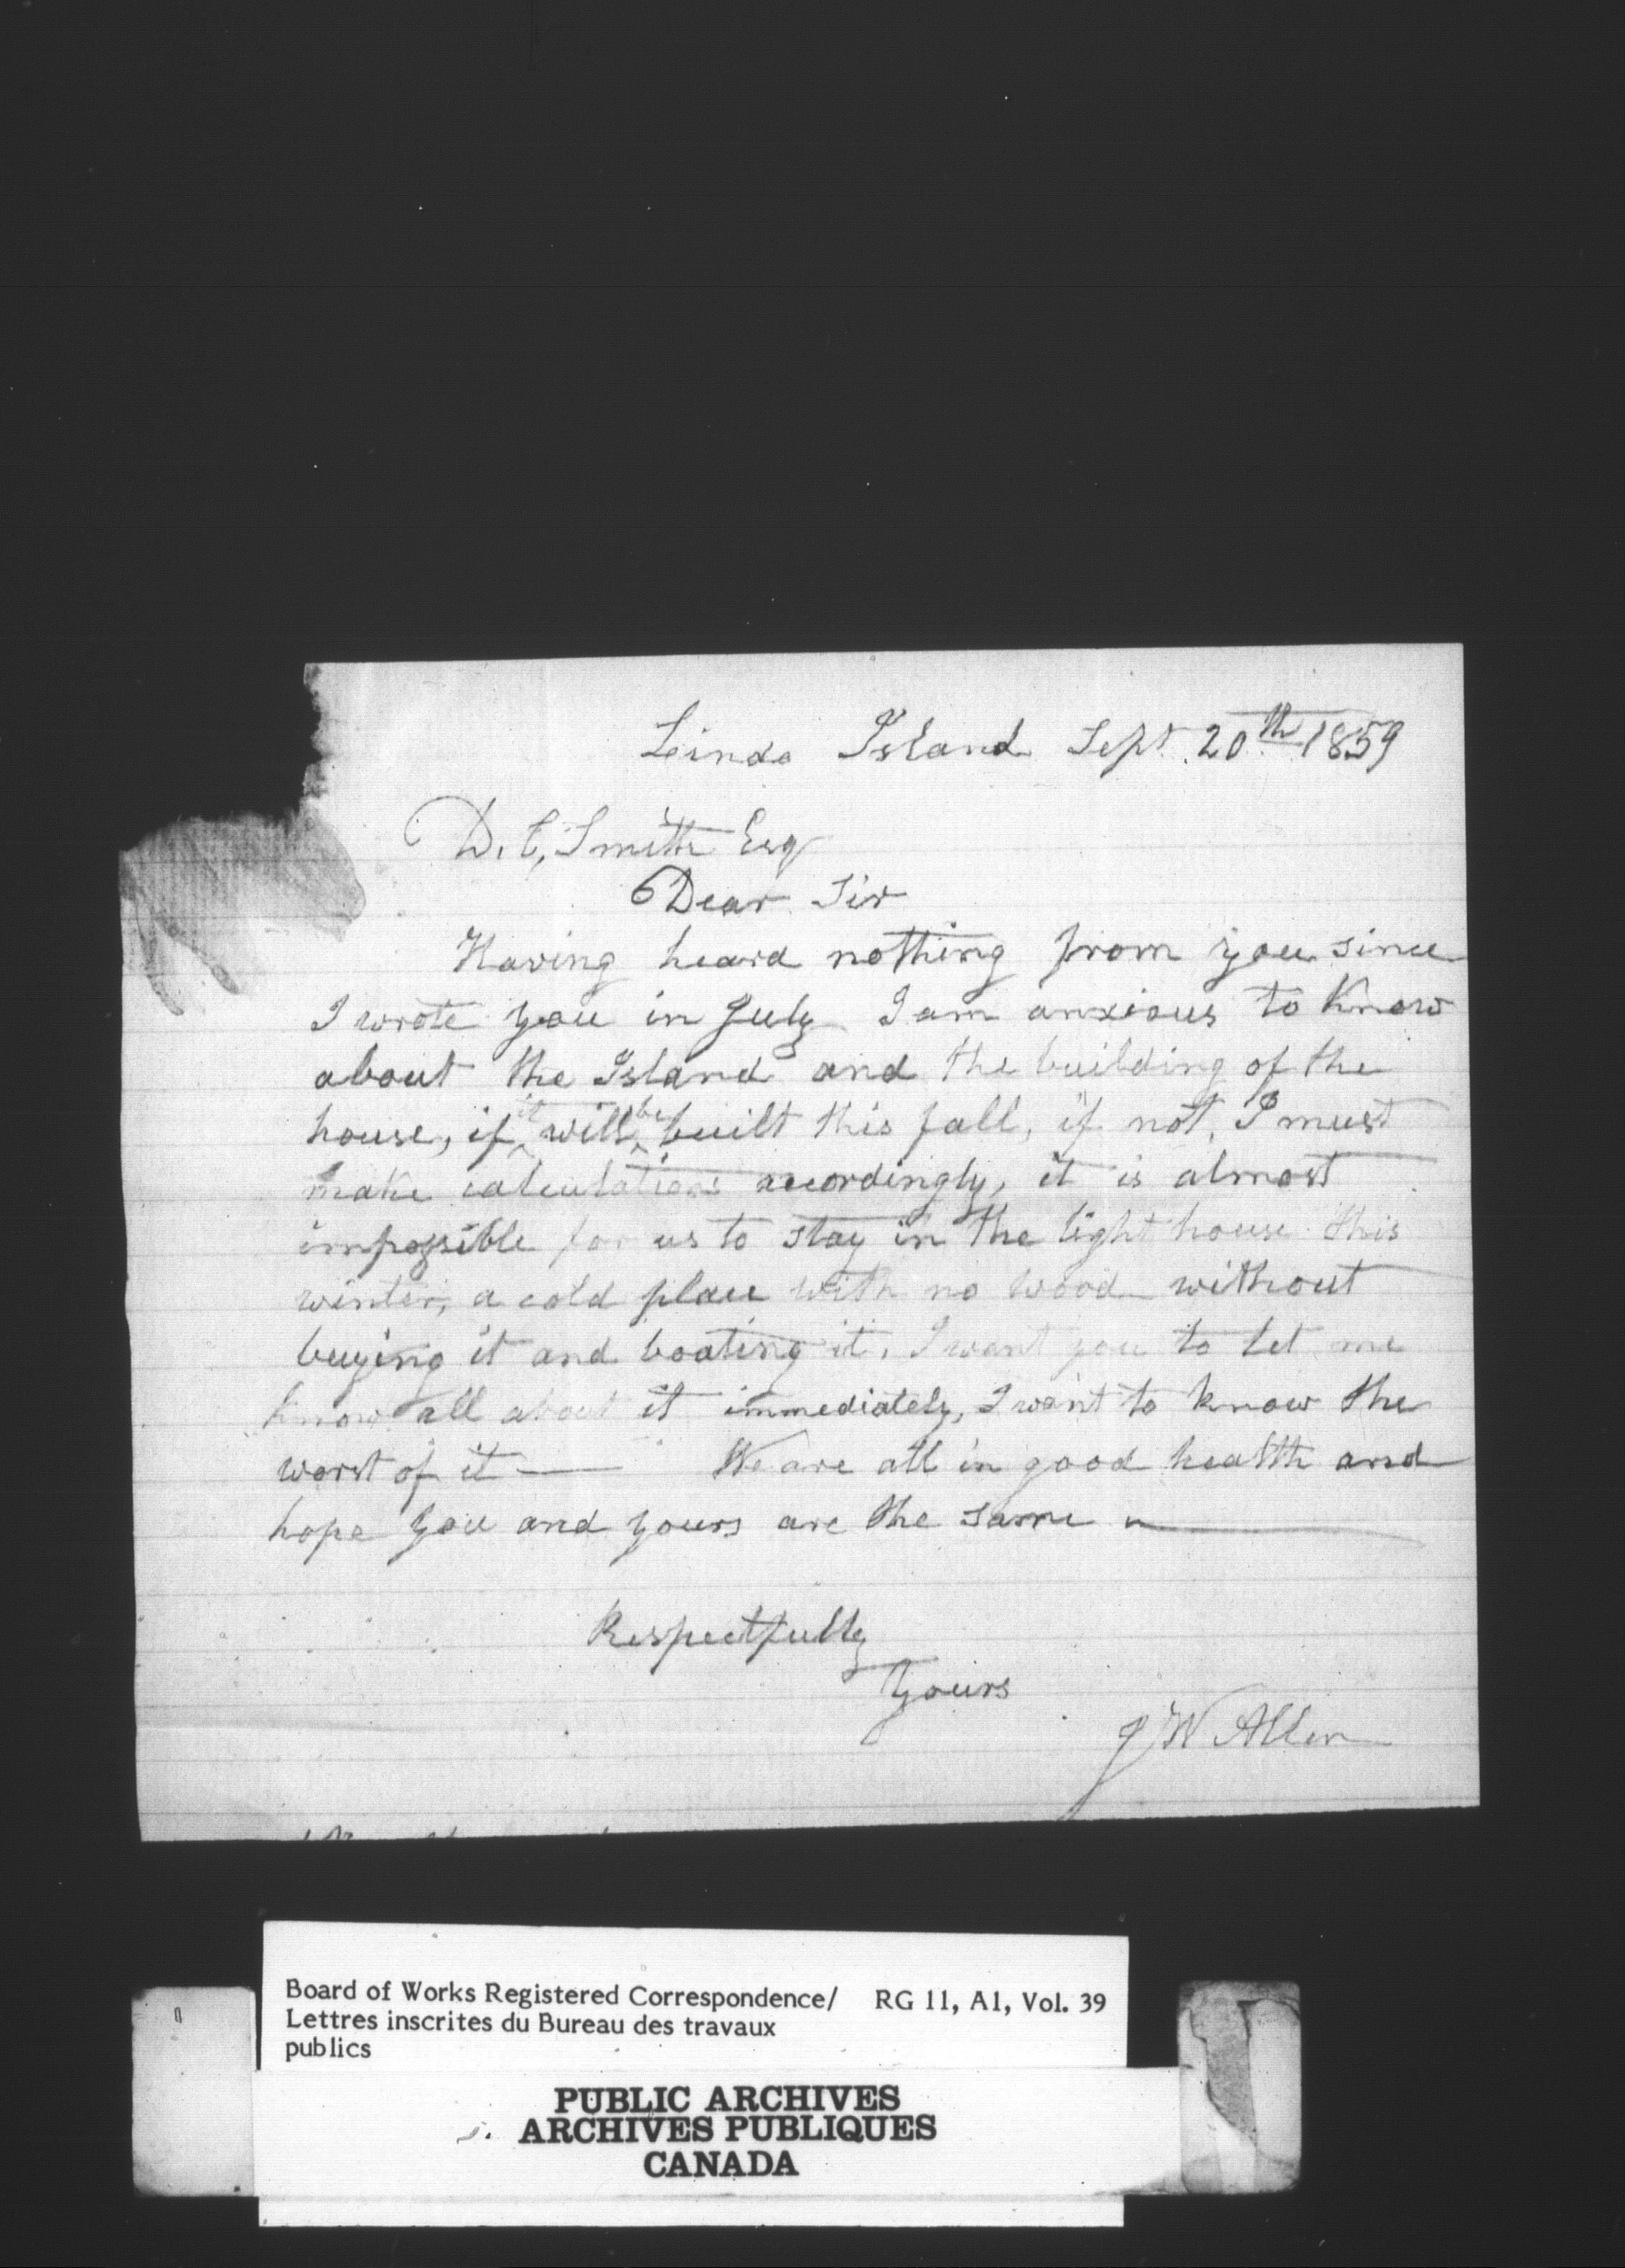 Linda Island Sept 20th 1859
D. C, Smith Esq
Dear Sir
Having heard nothing from you since
I wrote you in July I am anxious to know
about the Island and the building of the
house, if it will be built this fall, if not, I must
make calculations accordingly, it is almost
impossible for us to stay in the light house this
winter, a cold place with no wood without
buying it and boating it, I want you to let me
know all about it immediately, I want to know the
worst of it — We are all in good health and
hope you and yours are the same
Respectfully
Yours
J W Allen
Board of Works Registered Correspondence/ RG 11, A1, Vol. 39
Lettres inscrites du Bureau des travaux
publics
PUBLIC ARCHIVES
ARCHIVES PUBLIQUES
CANADA